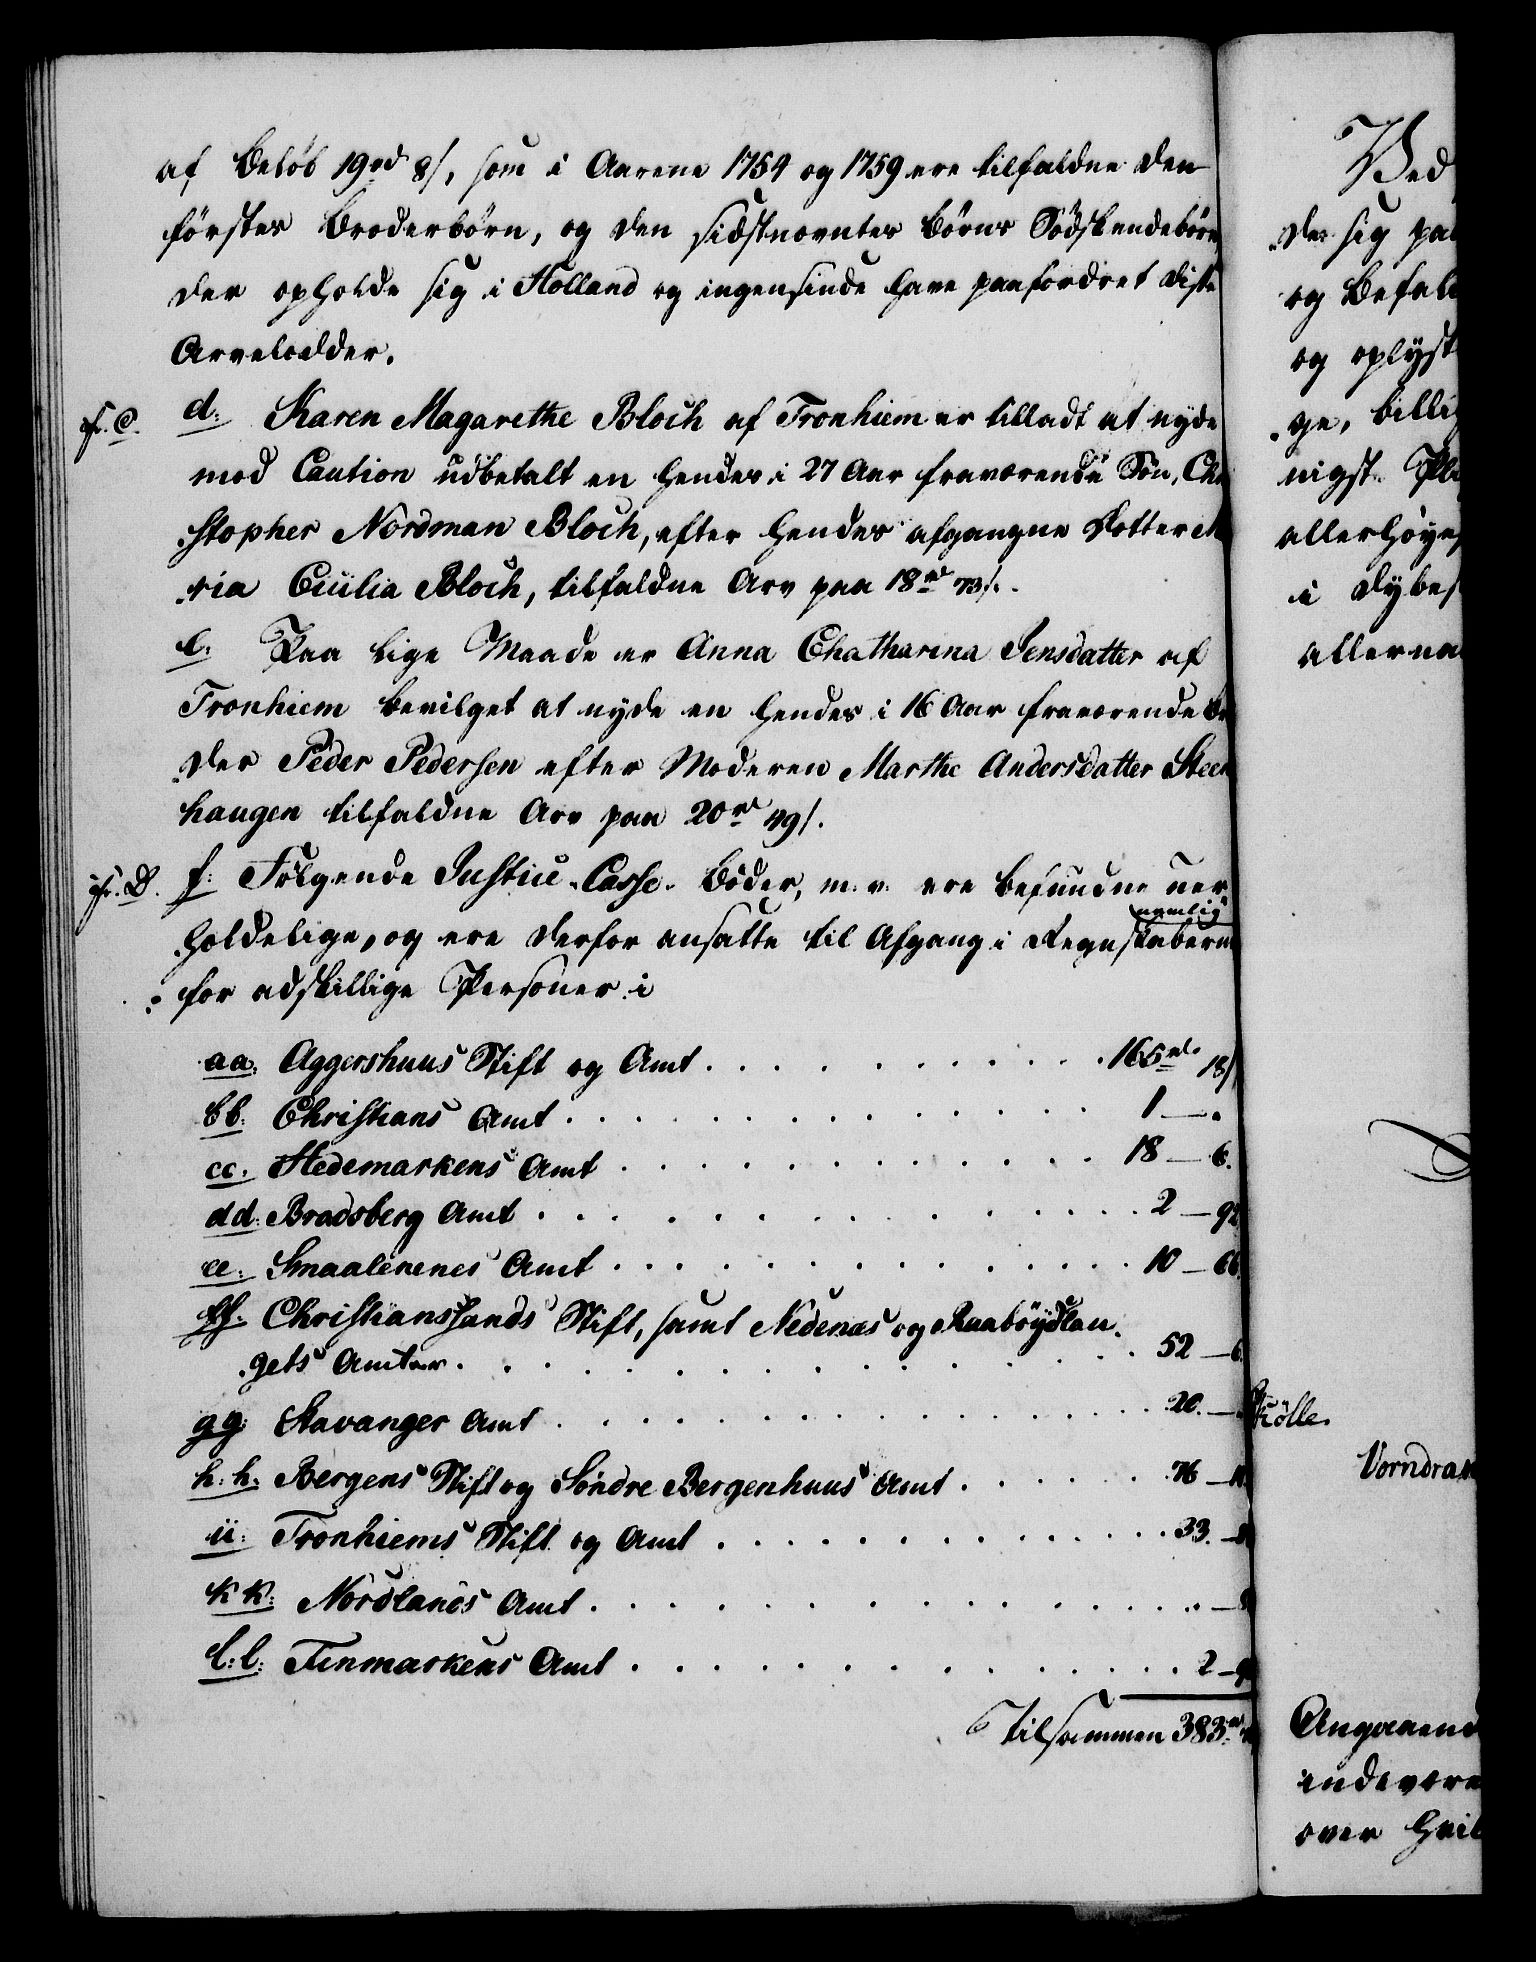 af Beløb 19 rd 8 s, som i Aarene 1754 og 1759 ere tilfaldne den
førstes Broderbörn, og den sidstnevntes Børns Södskendebörn
der opholde sig i Holland og ingensinde have paafordret disse
Arvelodder.
d: Karen Magarethe Bloch af Tronhiem er tilladt at nyde
mod Caution udbetalt en hendes i 27 Aar fraværende Søn, Chri
stopher Nordman Bloch, efter hendes afgangne Dotter Ma
ria Cicilia Bloch, tilfaldne Arv paa 18 rd 73 s.
e: Paa lige Maade er Anna Chatharina Jensdatter af
Tronhiem bevilget at nyde en hendes i 16 Aar fraværende Bro
der Peder Pedersen efter Moderen Marthe Andersdatter Steen
haugen tilfaldne Arv paa 20 rd 49 s.
f: Følgende Justice-Casse-Bøder, m. v. ere befundne uer
holdelige, og ere derfor ansatte til Afgang i Regnskaberne
nemlig
for adskillige Personer i
aa: Aggershuus Stift og Amt . . . 165 rd 18 s
bb: Christians Amt . . . 1 — .
cc: Hedemarkens Amt . . . 18 — 6.
dd: Bradsberg Amt . . . 2 — 92
ee: Smaalenenes Amt . . . 10 — 66
ff: Christianssands Stift, samt Nedenæs og Raabøydlau
gets Amter . . . 52 — 6
gg: Stavanger Amt . . . 20. —
h:h: Bergens Stift og Söndre Bergenhuus Amt . . . 76 —
ii: Tronhiems Stift og Amt . . . 33. —
kk: Nordlands Amt . . . . —
l:l: Finmarkens Amt . . . 2 —
Tilsammen 383 rd
Ved
der sig paa
og Befal
og oplyst
ge, billi
nigst
allerhøyes
i dybes
allerna
Kölle.
Vorndra
Angaaend
indevære
over